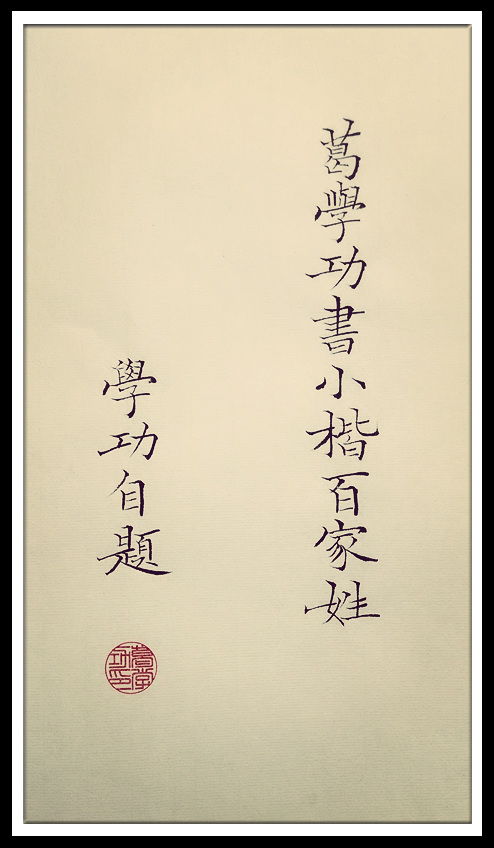 葛學功書小楷百家姓
學功自題